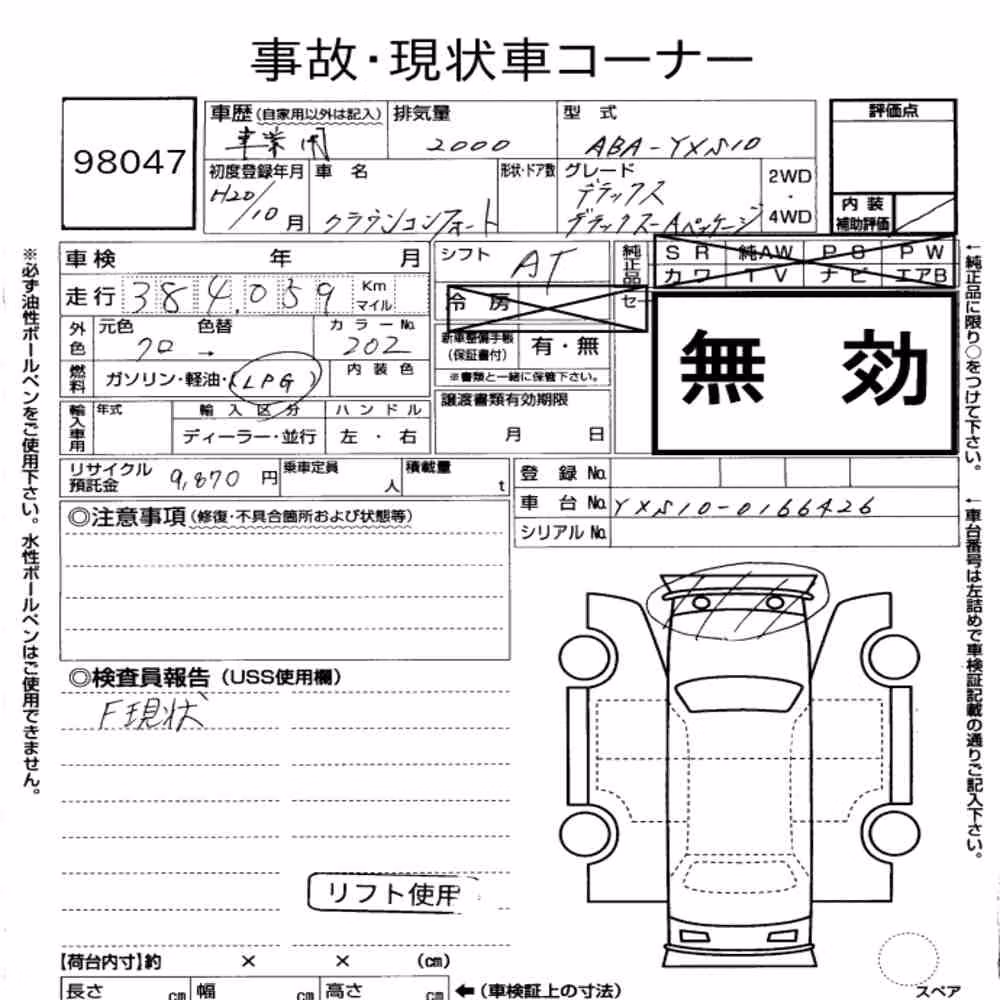 事故・現状車コーナー
98047
車歴(自家用以外は記入) 排気量 型 式 評価点
事業用 2000 ABA-YXS10
初度登録年月 車 名 形状・ドア数 グレード 2WD
H20/10月 クラウンコンフォート デラックス ・
デラックス-Aパッケージ 4WD
内 装
補助評価
車検 年 月 シフト AT
純正品 セ
S R 純AW P S P W
カワ T V ナビ エアB
走行 384,059 Km
マイル
冷 房
無 効
外色 元色 色替 カラーNo.
クロ → 202
新車整備手帳
(保証書付) 有・無
※書類と一緒に保管下さい。
燃料 ガソリン・軽油・(LPG) 内 装 色
輸入車用 年式 輸 入 区 分 ハ ン ド ル
ディーラー・並行 左 ・ 右
譲渡書類有効期限
月 日
リサイクル
預託金 9,870 円 乗車定員 人 積載量 t
登 録 No.
車 台 No. YXS10-0166426
シリアル No.
◎注意事項(修復・不具合箇所および状態等)
◎検査員報告(USS使用欄)
F現状
リフト使用
【荷台内寸】約 × × (cm)
長さ cm 幅 cm 高さ cm ←(車検証上の寸法)
スペア
※必ず油性ボールペンをご使用下さい。水性ボールペンはご使用できません。
←純正品に限り○をつけて下さい。
←車台番号は左詰めで車検証記載の通りご記入下さい。